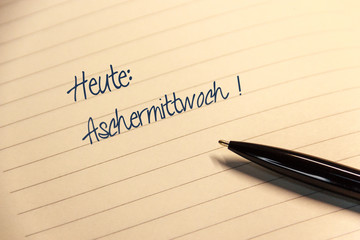 Heute:
Aschermittwoch !